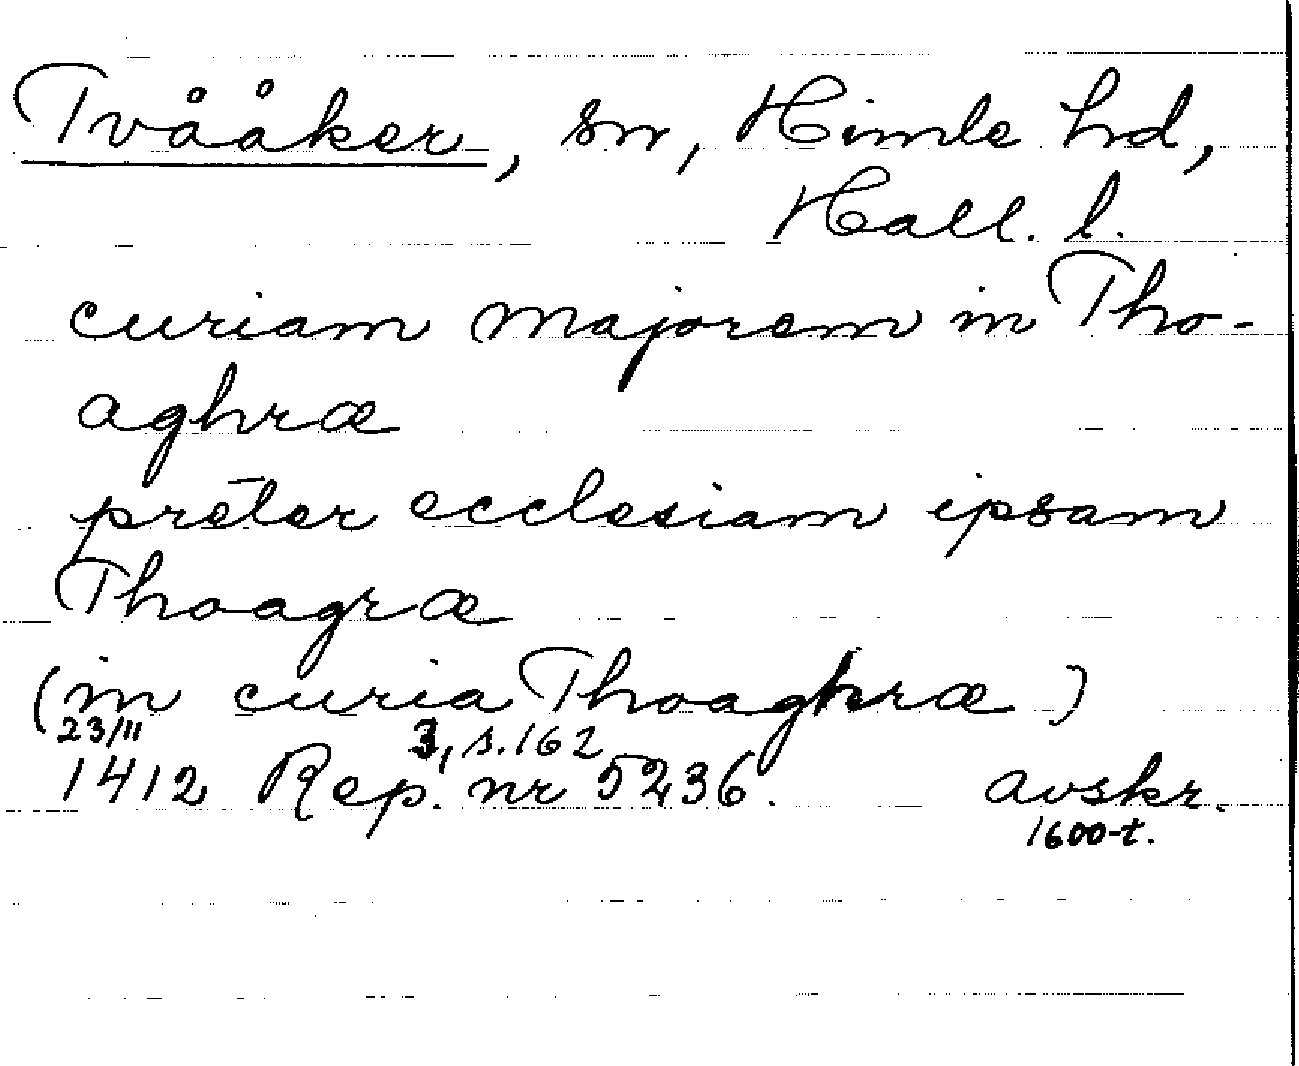 Tvååker, sn, Himle hd,
Hall. l.
curiam majorem in Tho-
aghræ
preter ecclesiam ipsam
Thoagræ
(in curia Thoaghræ)
23/11 3, s. 162
1412 Rep. nr 5236. avskr.
1600-t.